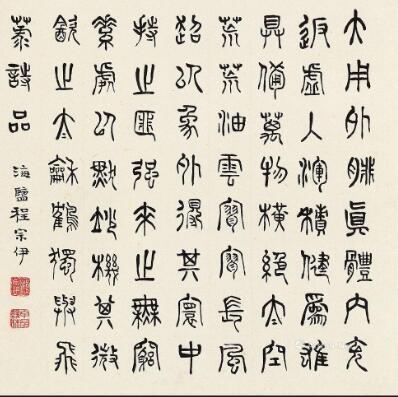 大用外腓真體内充
返虚入渾積健為雄
具備萬物橫絕太空
荒荒油雲寥寥長風
超以象外得其寰中
持之匪强來之無窮
素處以默妙機其微
飲之太龢鶴獨與飛
詩品 海鹽程宗伊